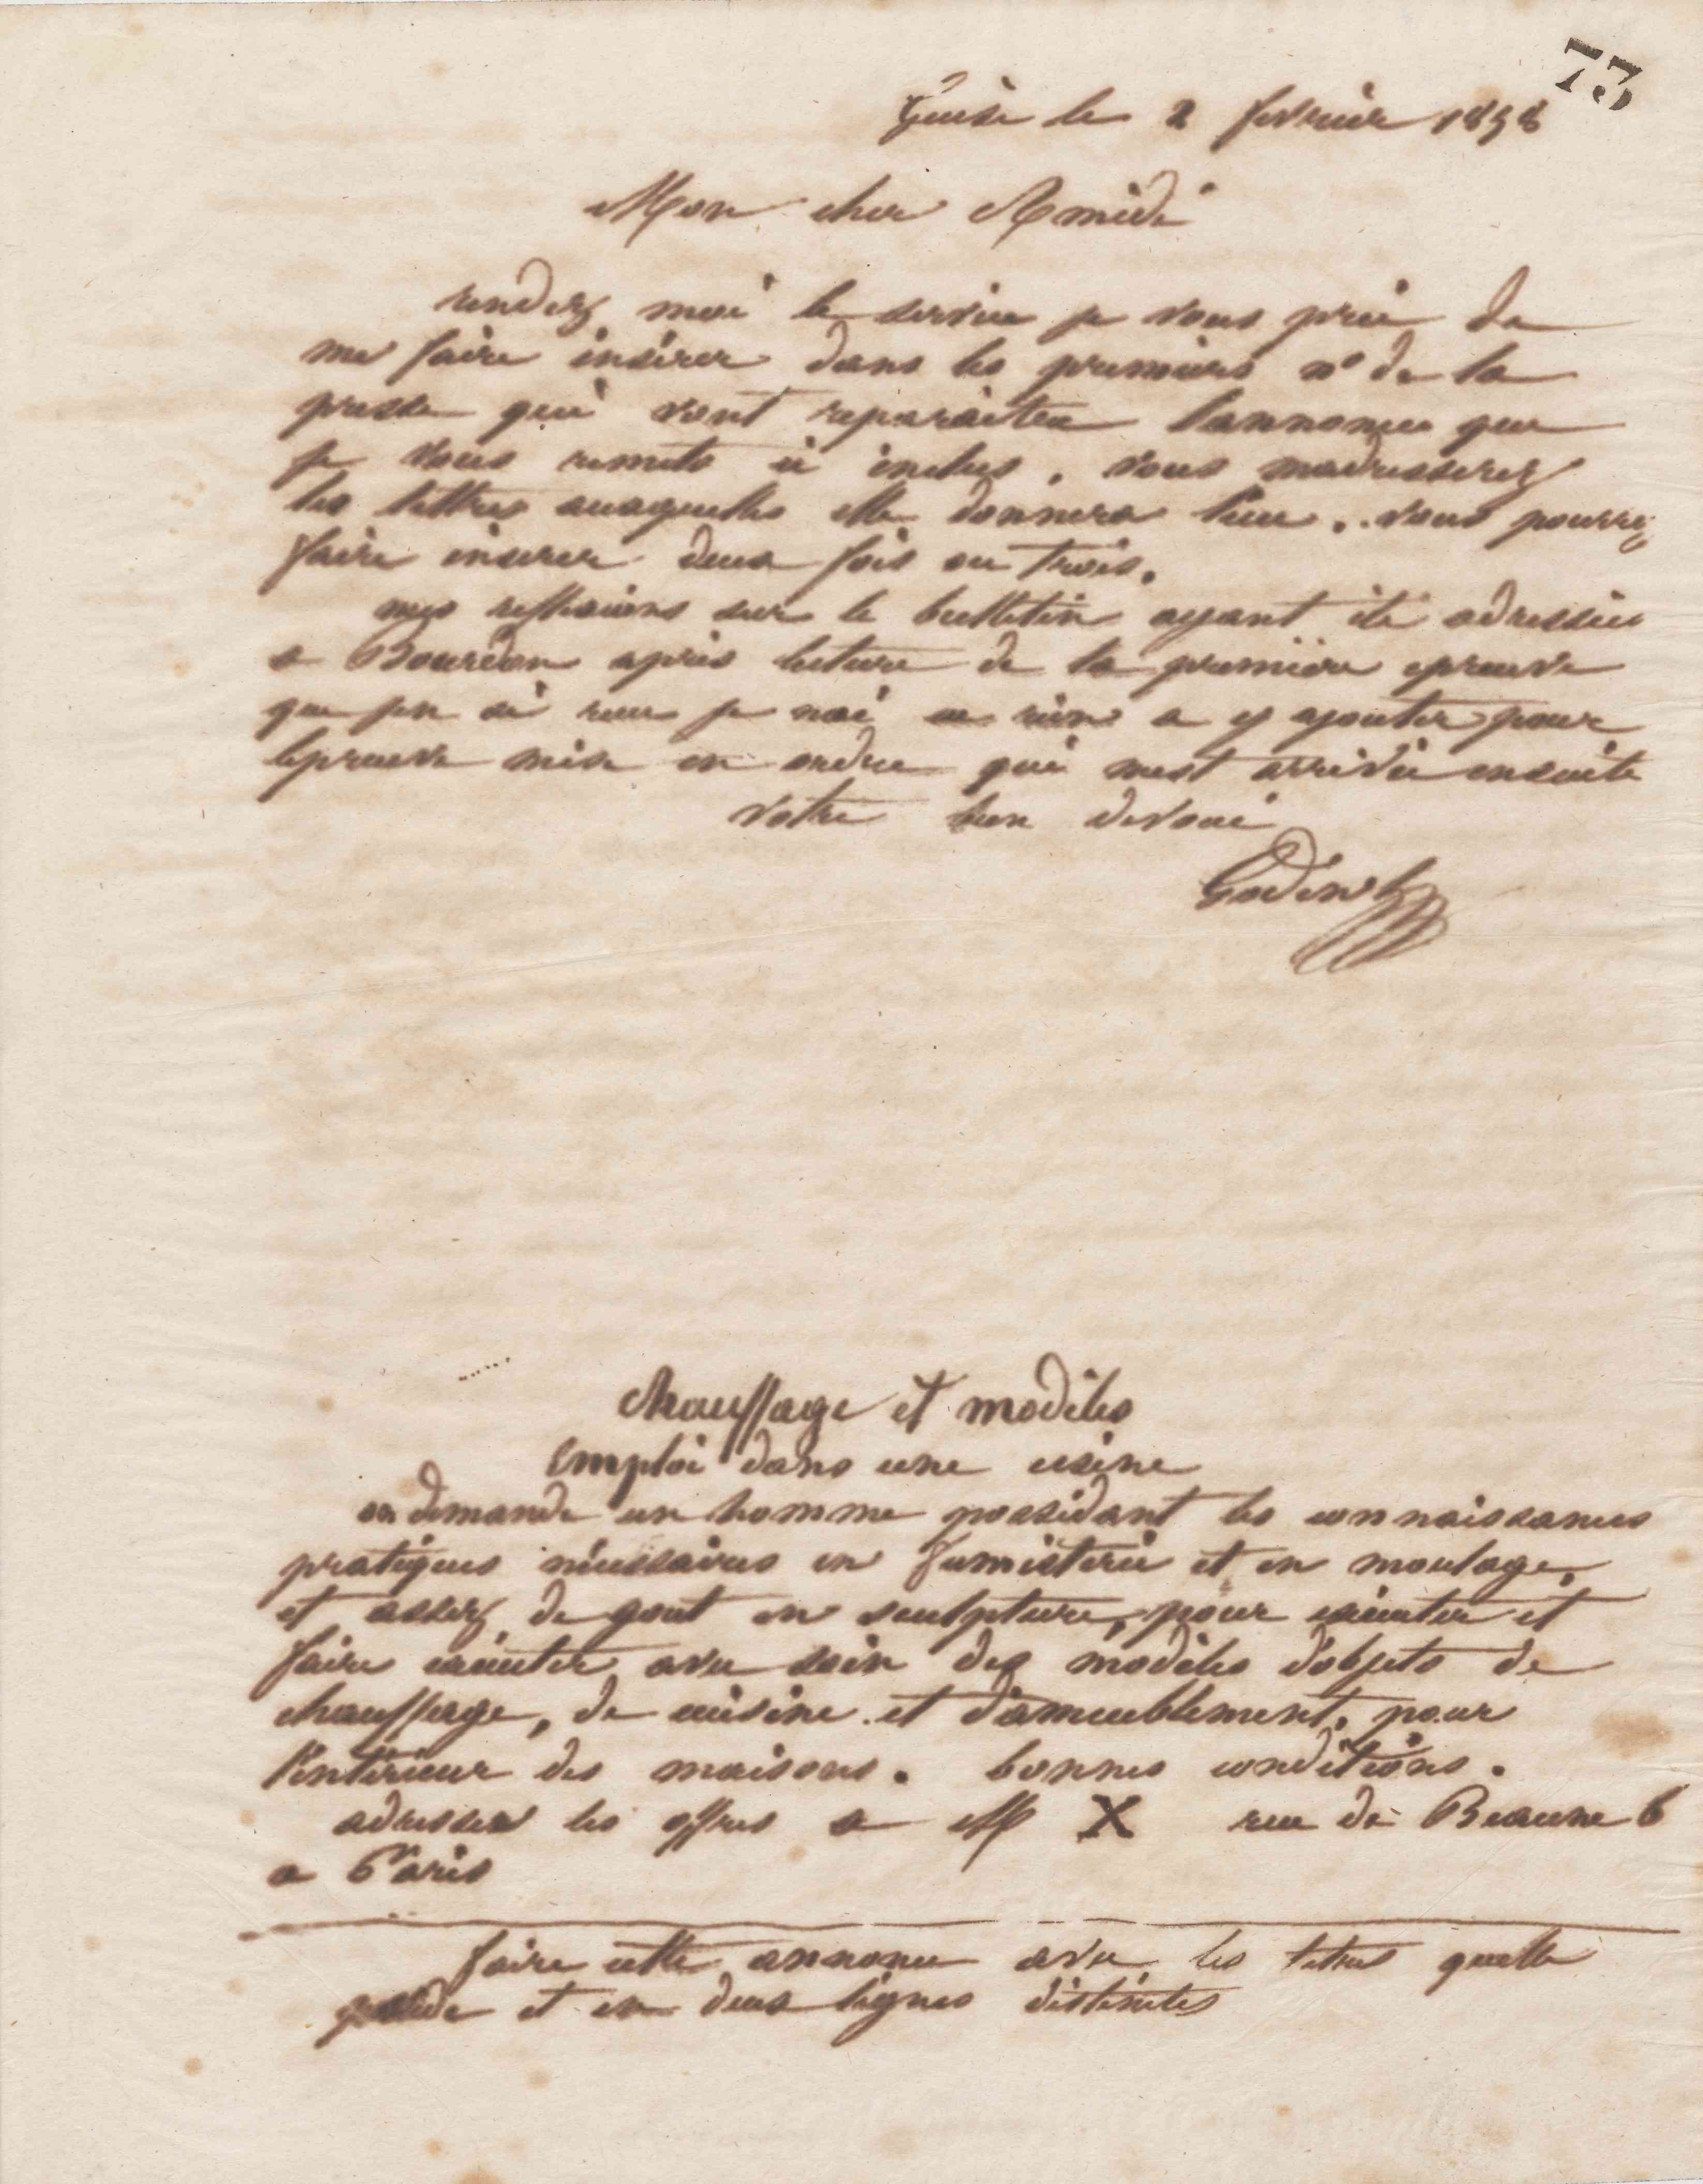 73
Guise le 2 fevrier 1858
Mon cher Amédé
rendez moi le service je vous prie de
me faire insérer dans les premiers n° de la
presse qui vont reparaitre lannonce que
je vous remets ci inclus. vous madresserez
les lettres auxquelles elle donnera lieu. vous pourrez
faire inserer deux fois ou trois.
mes reflexions sur le bulletin ayant été adressées
a Bourdon après lecture de la premiere epreuve
que jen ai reçu je nai eu rien a y ajouter pour
lepreuve mise en ordre qui mest arrivée ensuite
votre bien devoué
Godin
chauffage et modèles
Emploi dans une usine
on demande un homme possédant les connaissances
pratiques nécessaires en fumisterie et en moulage,
et assez de gout en sculpture, pour exécuter et
faire exécuter avec soin des modèles d'objets de
chauffage, de cuisine et d'ameublement, pour
l'intérieur des maisons. bonnes conditions.
adresser les offres a M X rue de Beaune 6
a Paris
faire cette annonce avec les titres quelle
possède et en deux lignes distinctes